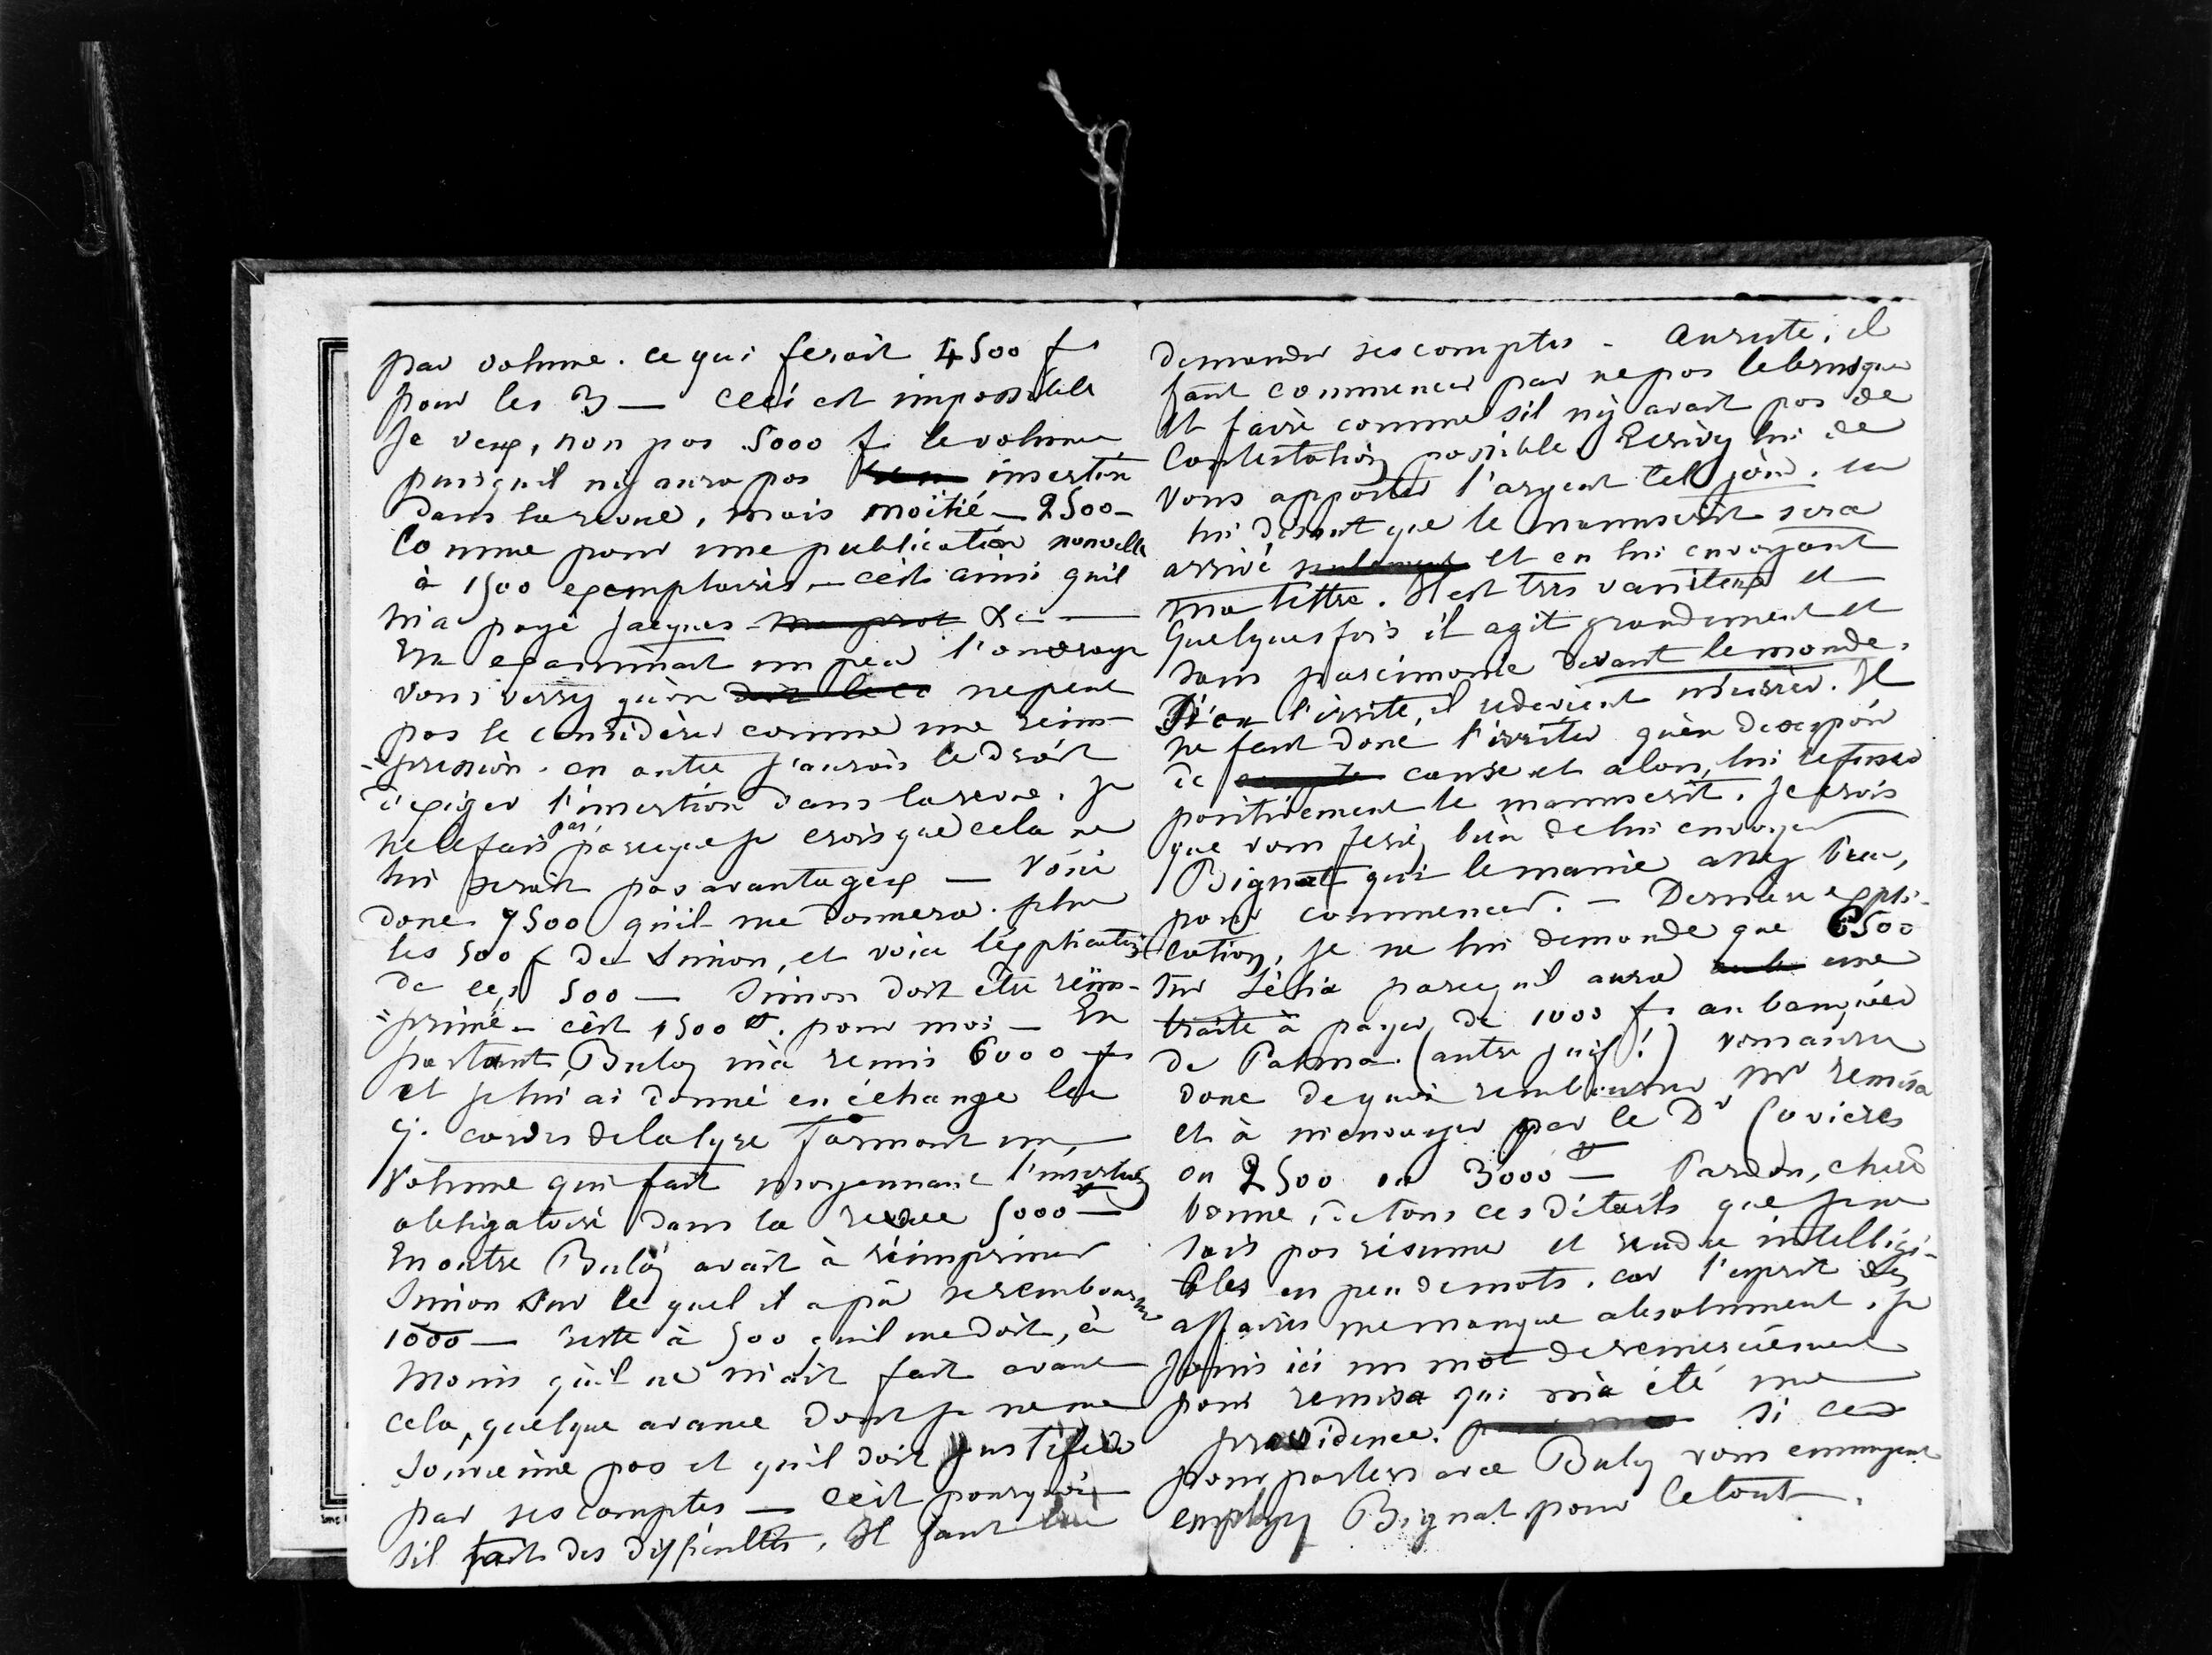 par volume. ce qui ferait 4500 f
pour les 3 — Ceci est impossible
Je veux, non pas 5000 f. le volume
puisqu'il n'y aura pas insertion
dans la revue, mais moitié — 2500 —
Comme pour une publication nouvelle
à 1500 exemplaires — c'est ainsi qu'il
m'a payé Jacques &c —
En examinant un peu l'ouvrage
vous verrez qu'on ne peut
pas le considérer comme une réim-
-pression. en outre j'aurais le droit
d'exiger l'insertion dans la revue. je
ne le fais pas, parceque je crois que cela ne
lui serait pas avantageux — Voici
donc 7500 qu'il me donnera. plus
les 500 f de Simon, et voici l'explication
de ces 500 — Simon doit être réim-
-primé — c'est 1500 f. pour moi — En
partant, Buloz m'a remis 6000 f
et je lui ai donné en échange les
7. cordes de la lyre formant un
volume qui fait moyennant l'insertion
obligatoire dans la revue 5000 f —
En outre Buloz avait à réimprimer
Simon sur le quel il a pu se rembourser
1000 — reste à 500 qu'il me doit, à
moins qu'il ne m'ait fait avant
cela, quelque avance dont je ne me
souvienne pas et qu'il doit justifier
par ses comptes — C'est pourquoi
s'il fait des difficultés, il faut lui
demander ses comptes — Au reste, il
faut commencer par ne pas le brusquer
et faire comme s'il n'y avait pas de
Contestation possible. Ecrivez lui de
vous apporter l'argent tel jour. en
lui disant que le manuscrit sera
arrivé et en lui envoyant
ma lettre. Il est très vaniteux et
Quelques fois il agit grandement et
sans parcimonie devant le monde.
Si on l'irrite, il redevient usurier. Il
ne faut donc l'irriter qu'en desespoir
de cause et alors, lui refuser
positivement le manuscrit. Je crois
que vous feriez bien de lui envoyer
Bignat qui le manie assez bien,
pour commencer. — Dernière expli-
cation, je ne lui demande que 6500
sur Lélia parcequ'il aura une
traite à payer de 1000 f. au banquier
de Palma (autre juif!) vous aurez
donc de quoi rembourser Mr remisa
et à m'envoyer par le Dr Covieres
ou 2500 ou 3000 f — Pardon, chère
bonne, de tous ces détails que je ne
sais pas résumer et rendre intelligi-
bles en peu de mots. car l'esprit des
affaires me manque absolument. je
joins ici un mot de remerciement
pour remisa qui m'a été une
providence. si ces
pourparlers avec Buloz vous ennuyent
employez Bignat pour le tout.